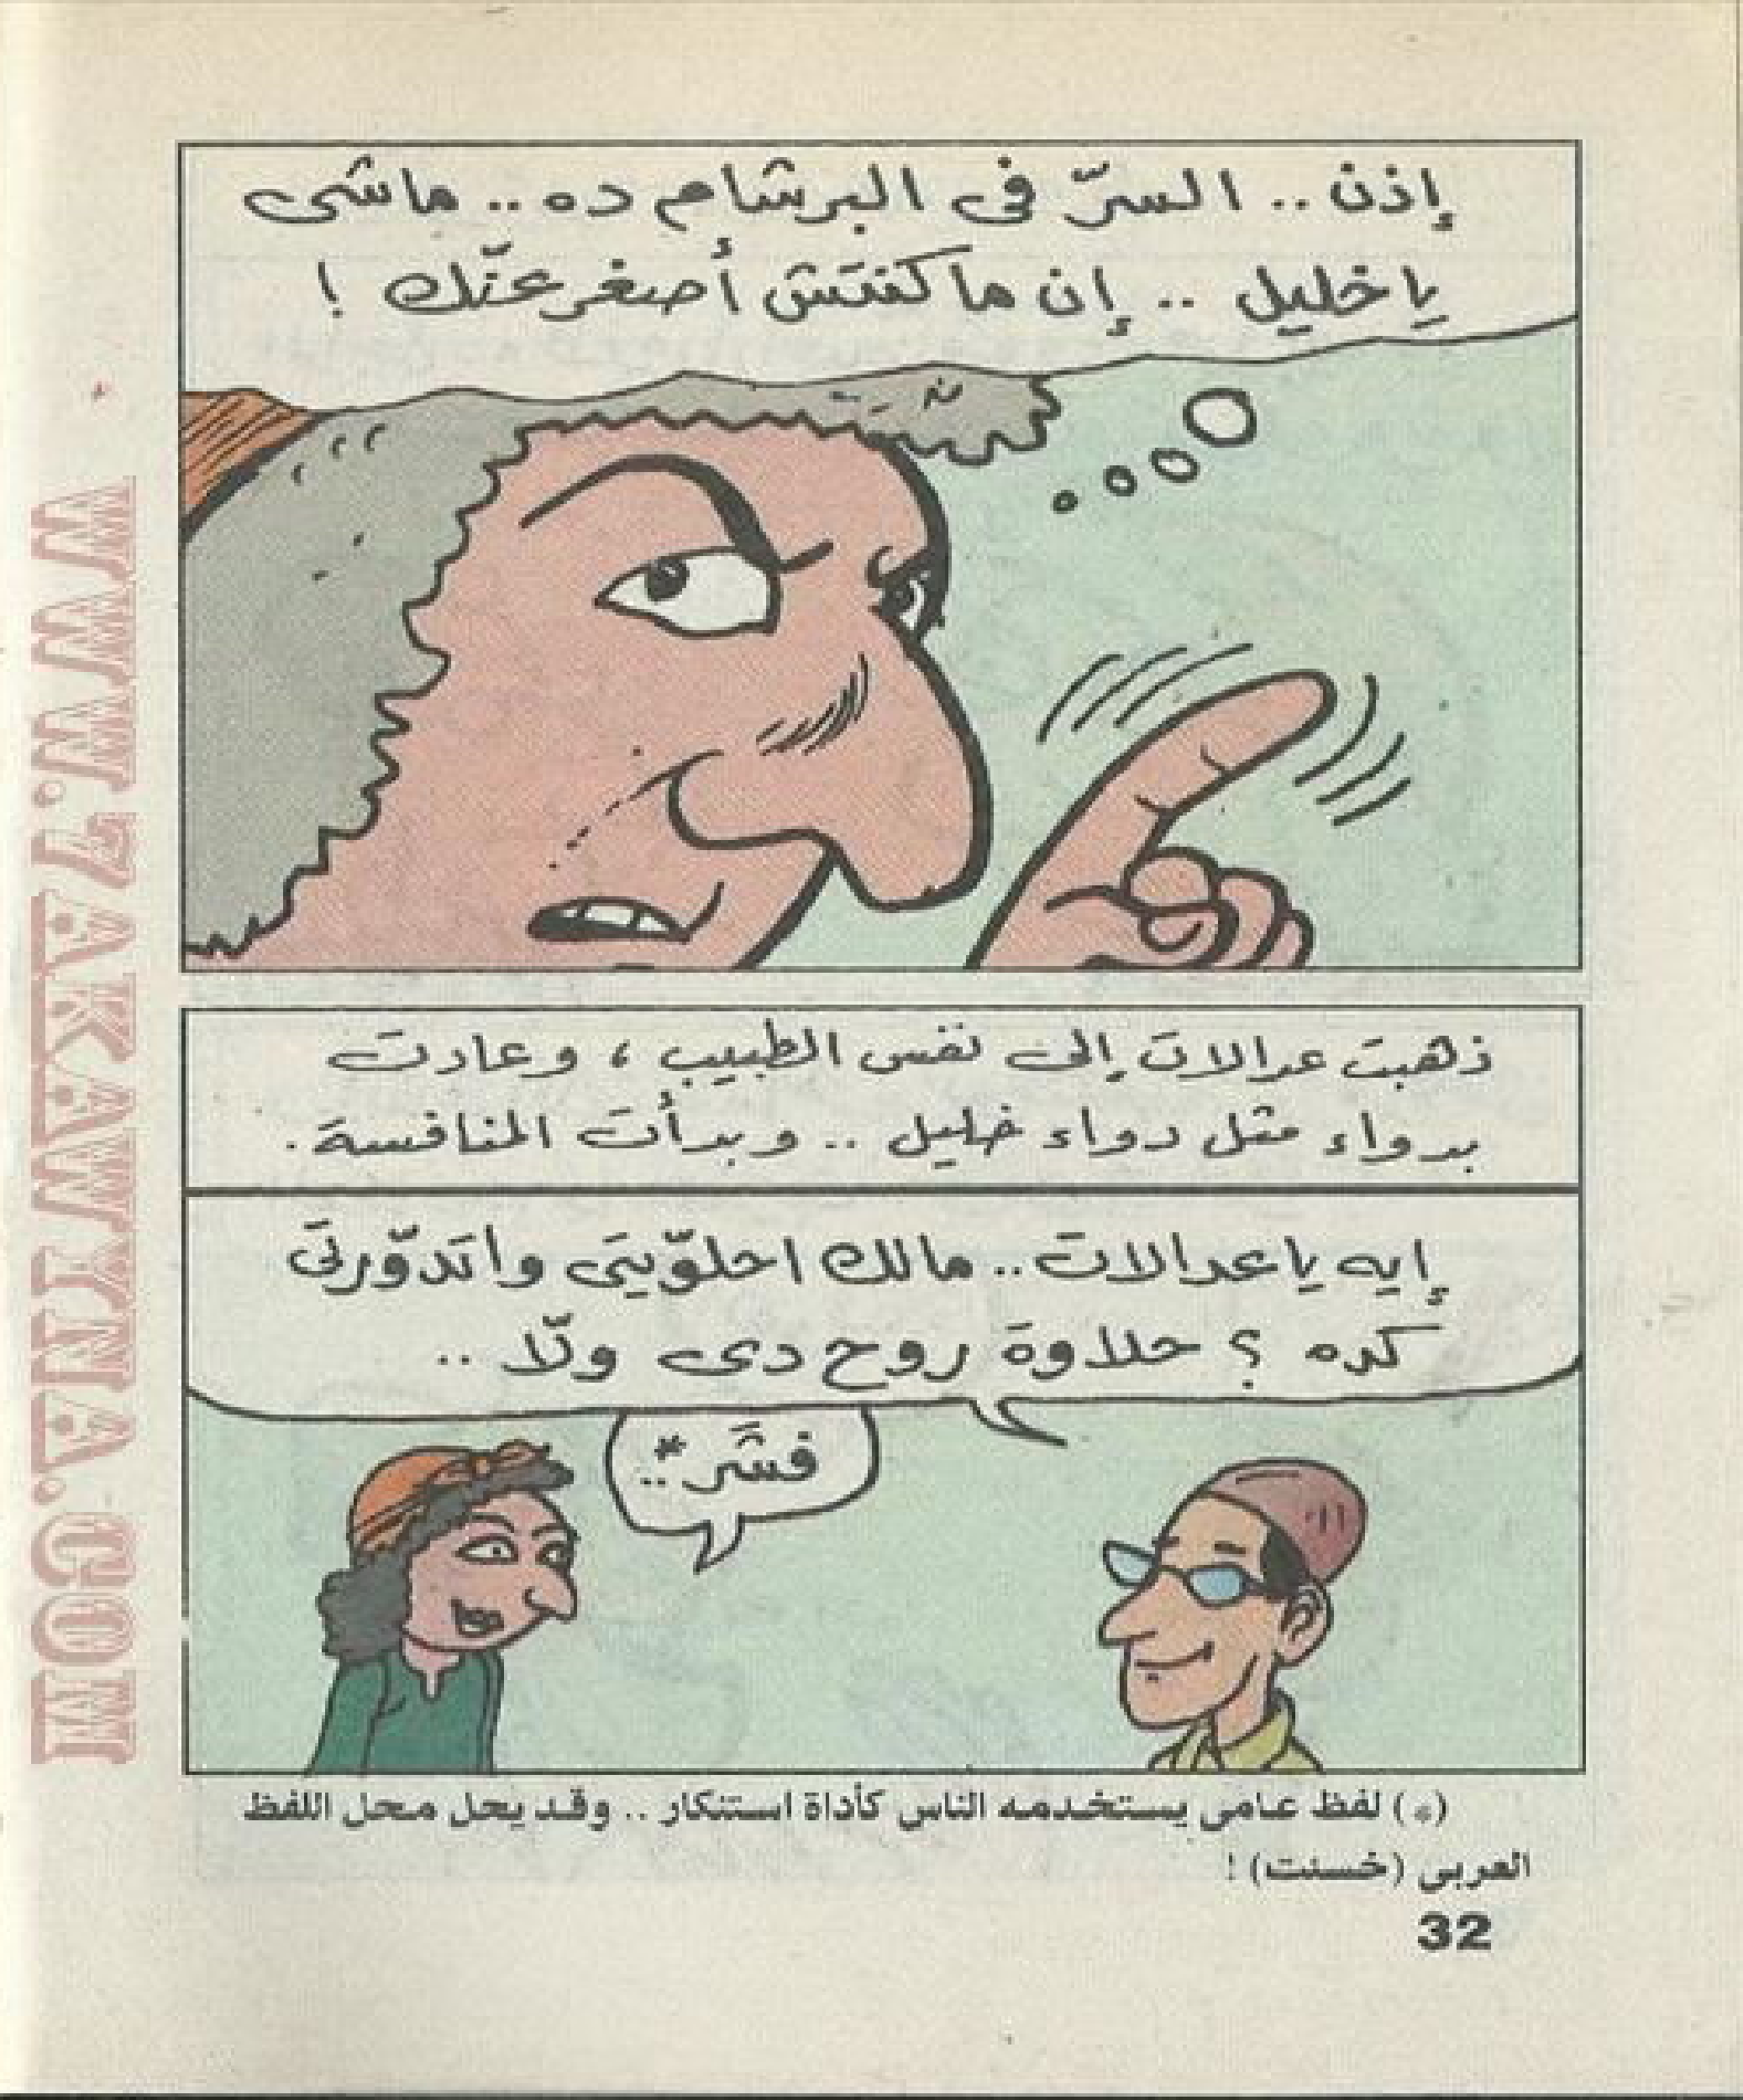 إذن .. السرّ فى البرشام ده .. ماشى
يا خليل .. إن ما كنتش أصغر عنّك !
ذهبت عدالات إلى نفس الطبيب ، وعادت
بدواء مثل دواء خليل .. وبدأت المنافسة .
إيه يا عدالات .. مالك احلوّيتى واتدوّرتى
كده ؟ حلاوة روح دى ولّا ..
فشَر* ..
(*) لفظ عامى يستخدمه الناس كأداة استنكار .. وقد يحل محل اللفظ
العربى (خسئت) !
32
WWW.7AKAWINA.COM